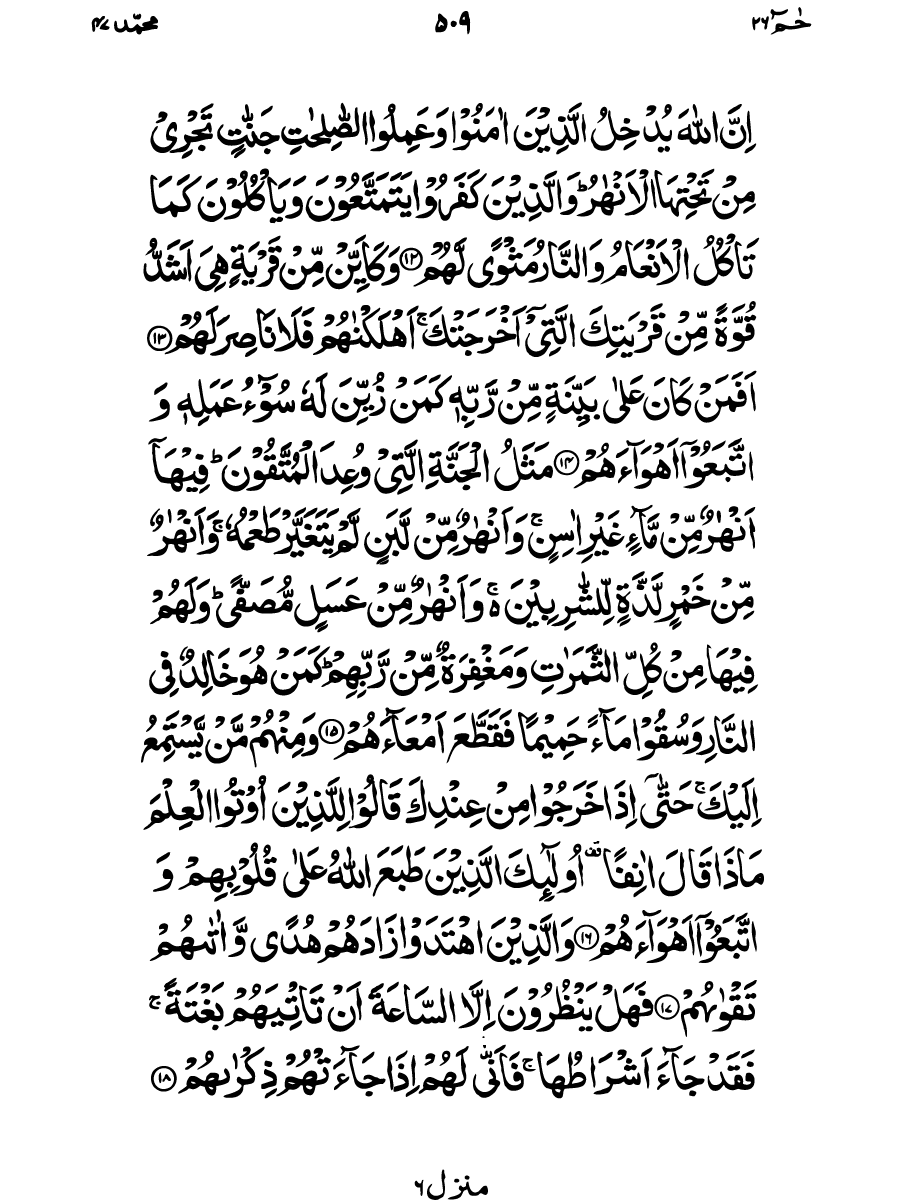 حٰمٓ ٢٦ ٥٠٩ محمّد ٤٧
اِنَّ اللّٰهَ يُدْخِلُ الَّذِيْنَ اٰمَنُوْا وَعَمِلُوا الصّٰلِحٰتِ جَنّٰتٍ تَجْرِيْ
مِنْ تَحْتِهَا الْاَنْهٰرُ ؕ وَالَّذِيْنَ كَفَرُوْا يَتَمَتَّعُوْنَ وَيَاْكُلُوْنَ كَمَا
تَاْكُلُ الْاَنْعَامُ وَالنَّارُ مَثْوًى لَّهُمْ ⑫ وَكَاَيِّنْ مِّنْ قَرْيَةٍ هِيَ اَشَدُّ
قُوَّةً مِّنْ قَرْيَتِكَ الَّتِيْٓ اَخْرَجَتْكَ ۚ اَهْلَكْنٰهُمْ فَلَا نَاصِرَ لَهُمْ ⑬
اَفَمَنْ كَانَ عَلٰى بَيِّنَةٍ مِّنْ رَّبِّهٖ كَمَنْ زُيِّنَ لَهٗ سُوْٓءُ عَمَلِهٖ وَ
اتَّبَعُوْٓا اَهْوَآءَهُمْ ⑭ مَثَلُ الْجَنَّةِ الَّتِيْ وُعِدَ الْمُتَّقُوْنَ ؕ فِيْهَآ
اَنْهٰرٌ مِّنْ مَّآءٍ غَيْرِ اٰسِنٍ ۚ وَاَنْهٰرٌ مِّنْ لَّبَنٍ لَّمْ يَتَغَيَّرْ طَعْمُهٗ ۚ وَاَنْهٰرٌ
مِّنْ خَمْرٍ لَّذَّةٍ لِّلشّٰرِبِيْنَ ەۚ وَاَنْهٰرٌ مِّنْ عَسَلٍ مُّصَفًّى ؕ وَلَهُمْ
فِيْهَا مِنْ كُلِّ الثَّمَرٰتِ وَمَغْفِرَةٌ مِّنْ رَّبِّهِمْ ؕ كَمَنْ هُوَ خَالِدٌ فِي
النَّارِ وَسُقُوْا مَآءً حَمِيْمًا فَقَطَّعَ اَمْعَآءَهُمْ ⑮ وَمِنْهُمْ مَّنْ يَّسْتَمِعُ
اِلَيْكَ ۚ حَتّٰٓى اِذَا خَرَجُوْا مِنْ عِنْدِكَ قَالُوْا لِلَّذِيْنَ اُوْتُوا الْعِلْمَ
مَاذَا قَالَ اٰنِفًا ۫ اُولٰٓئِكَ الَّذِيْنَ طَبَعَ اللّٰهُ عَلٰى قُلُوْبِهِمْ وَ
اتَّبَعُوْٓا اَهْوَآءَهُمْ ⑯ وَالَّذِيْنَ اهْتَدَوْا زَادَهُمْ هُدًى وَّاٰتٰىهُمْ
تَقْوٰىهُمْ ⑰ فَهَلْ يَنْظُرُوْنَ اِلَّا السَّاعَةَ اَنْ تَاْتِيَهُمْ بَغْتَةً ۚ
فَقَدْ جَآءَ اَشْرَاطُهَا ۚ فَاَنّٰى لَهُمْ اِذَا جَآءَتْهُمْ ذِكْرٰىهُمْ ⑱
منزل ٦